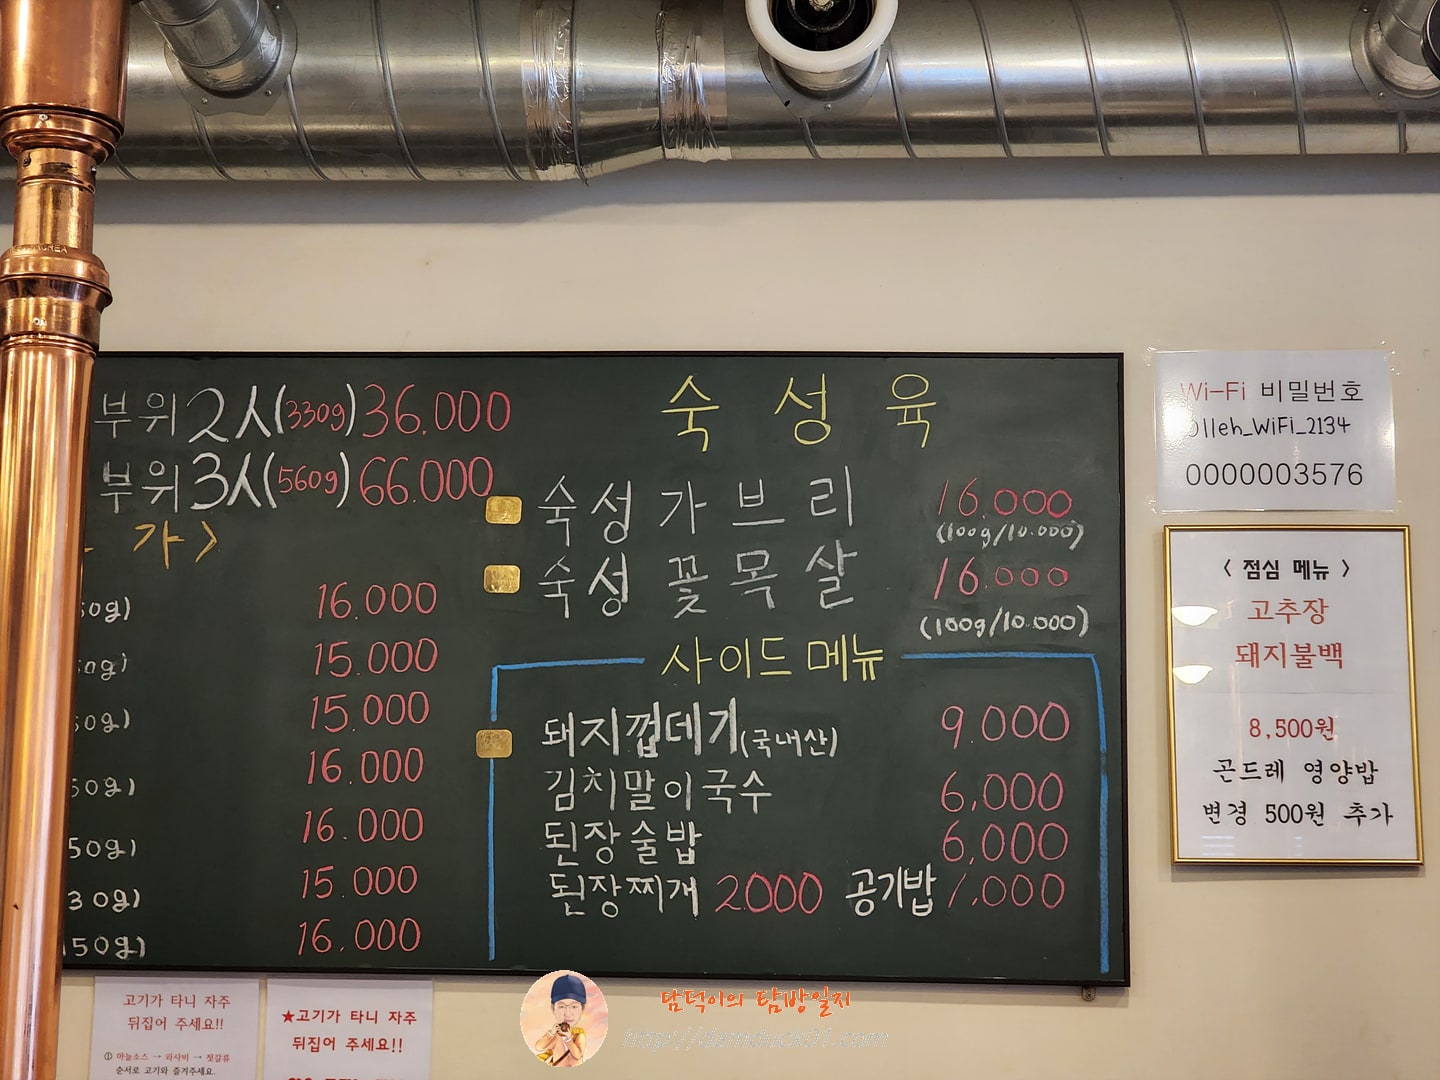 부위2人(330g)36.000
부위3人(560g)66.000
가>
16.000
15.000
15.000
16.000
16.000
30g) 15.000
150g) 16.000
숙성육
숙성가브리 16.000
(100g/10.000)
숙성꽃목살 16.000
(100g/10.000)
사이드메뉴
돼지껍데기(국내산) 9.000
김치말이국수 6,000
된장술밥 6,000
된장찌개 2000 공기밥 1,000
Wi-Fi 비밀번호
Olleh_WiFi_2134
0000003576
< 점심 메뉴 >
고추장
돼지불백
8,500원
곤드레 영양밥
변경 500원 추가
고기가 타니 자주
뒤집어 주세요!!
① 마늘소스 → 와사비 → 젓갈류
순서로 고기와 즐겨주세요.
★고기가 타니 자주
뒤집어 주세요!!
담덕이의 탐방일지